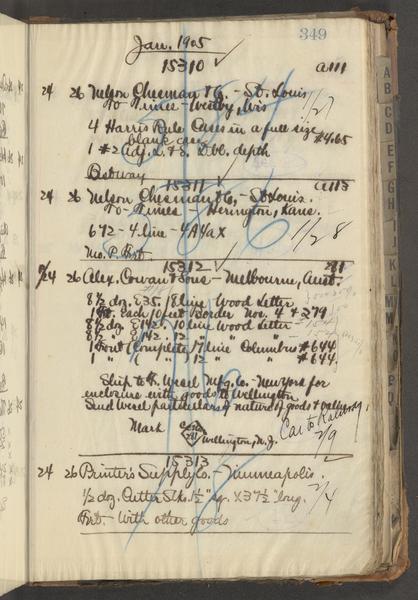 349
Jan. 1905
15310 a111
24 26 Nelson Chesman & Co. - St. Louis
To Times - Westby, Wis 1/27
4 Harris Rule Cases in a full size
blank case #4.65
1 #2 Adj. L. & S. Dbl. depth
15311 a113
24 26 Nelson Chesman & Co, - St Louis.
To - Times - Herington, Kans.
672 - 4 line - 4A4aX 1/28
Mo. P. Frt.
15312 281
24 26 Alex. Cowan & Sons - Melbourne, Aust.
8½ doz. E35. 18 line Wood Letter
1 Ft. Each 10 feet Border Nos. 4 & 279
8½ doz. E142. 10 line Wood Letter
8½ " E142. 12 " " "
1 Font (Complete) 17 line Columbus #644.
1 " " 12 " " #644.
Ship to F. Wesel Mfg. Co. - New York for
enclosure with goods to Wellington
Send Wesel particulars of nature of goods & value
Mark 281 Wellington, N.Z.
Car to 2/9
15313
24 26 Printer's Supply Co. - Minneapolis.
½ doz. Cutter Stks. 1½" sq. X 37½" long. 2/4
Frt. - With other goods
A
B
C
D
E
F
G
H
I
J
K
L
M